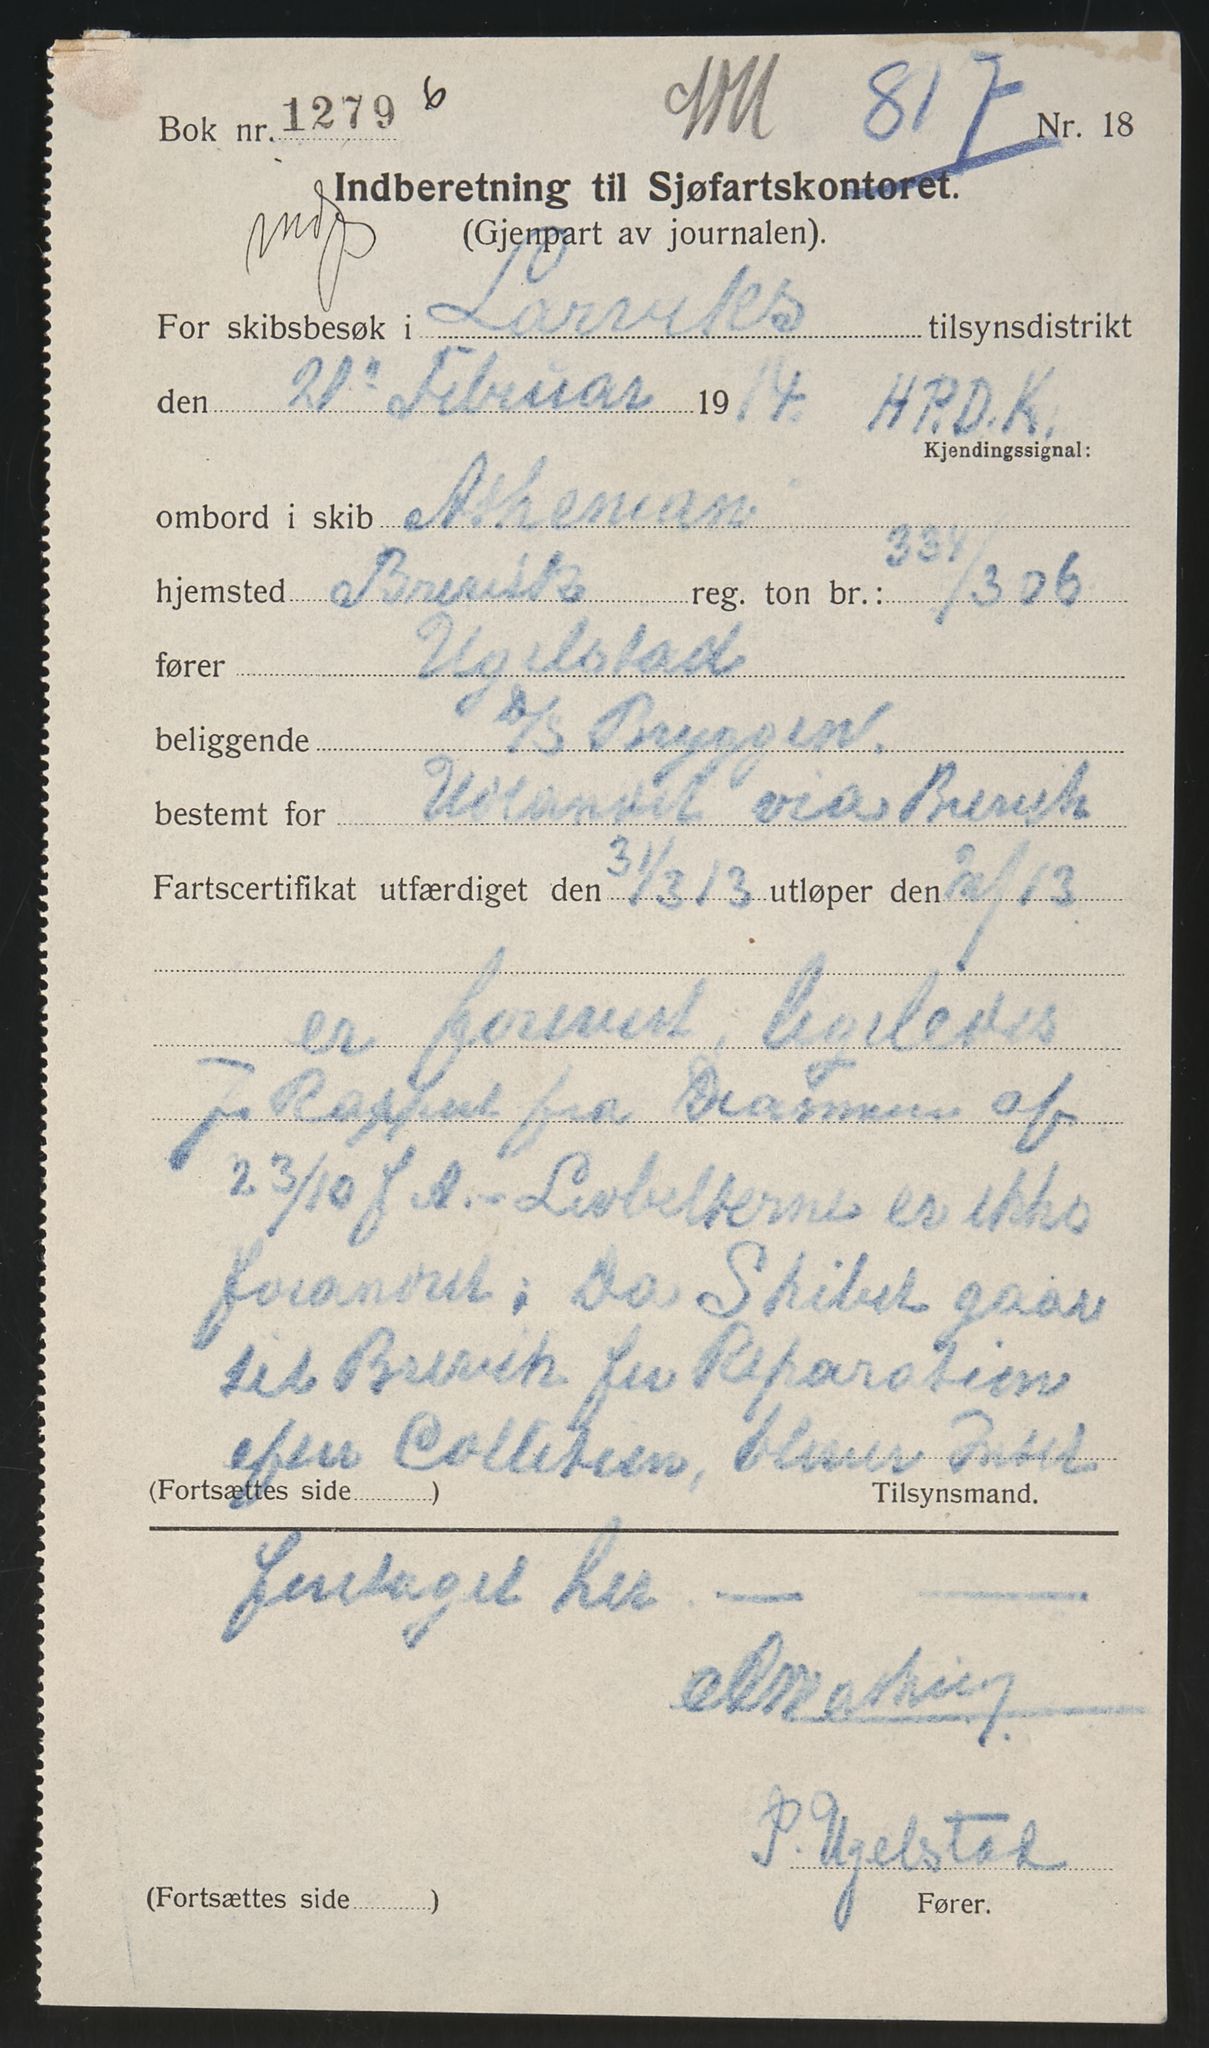 Bok nr. 1279 b 817 Nr. 18
Indberetning til Sjøfartskontoret.
(Gjenpart av journalen).
For skibsbesøk i Larviks tilsynsdistrikt
den 21de Februar 1914. H.P.D.K.
Kjendingssignal:
ombord i skib Athenian
hjemsted Brevik reg. ton br.: 334/306
fører Ugelstad
beliggende D/S Bryggen.
bestemt for Udlandet via Brevik
Fartscertifikat utfærdiget den 31/3 13 utløper den /13
er forevist, ligeledes
Rapport fra Drammen af
23/10 f A. - Livbelterne er ikke
forandret; Da Skibet gaar
til Brevik for Reparation
efter Collision, bliver Intet
(Fortsættes side ) Tilsynsmand.
foretaget her. — —
P. Ugelstad
(Fortsættes side ) Fører.